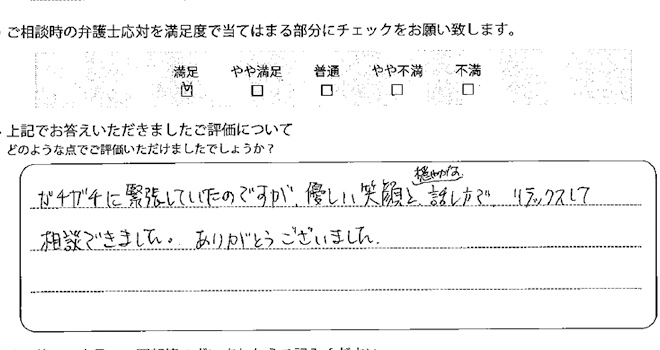 ご相談時の弁護士応対を満足度で当てはまる部分にチェックをお願い致します。
満足 やや満足 普通 やや不満 不満
上記でお答えいただきましたご評価について
どのような点でご評価いただけましたでしょうか?
穏やかな
ガチガチに緊張していたのですが、優しい笑顔と話し方で、リラックスして
相談できました。ありがとうございました。